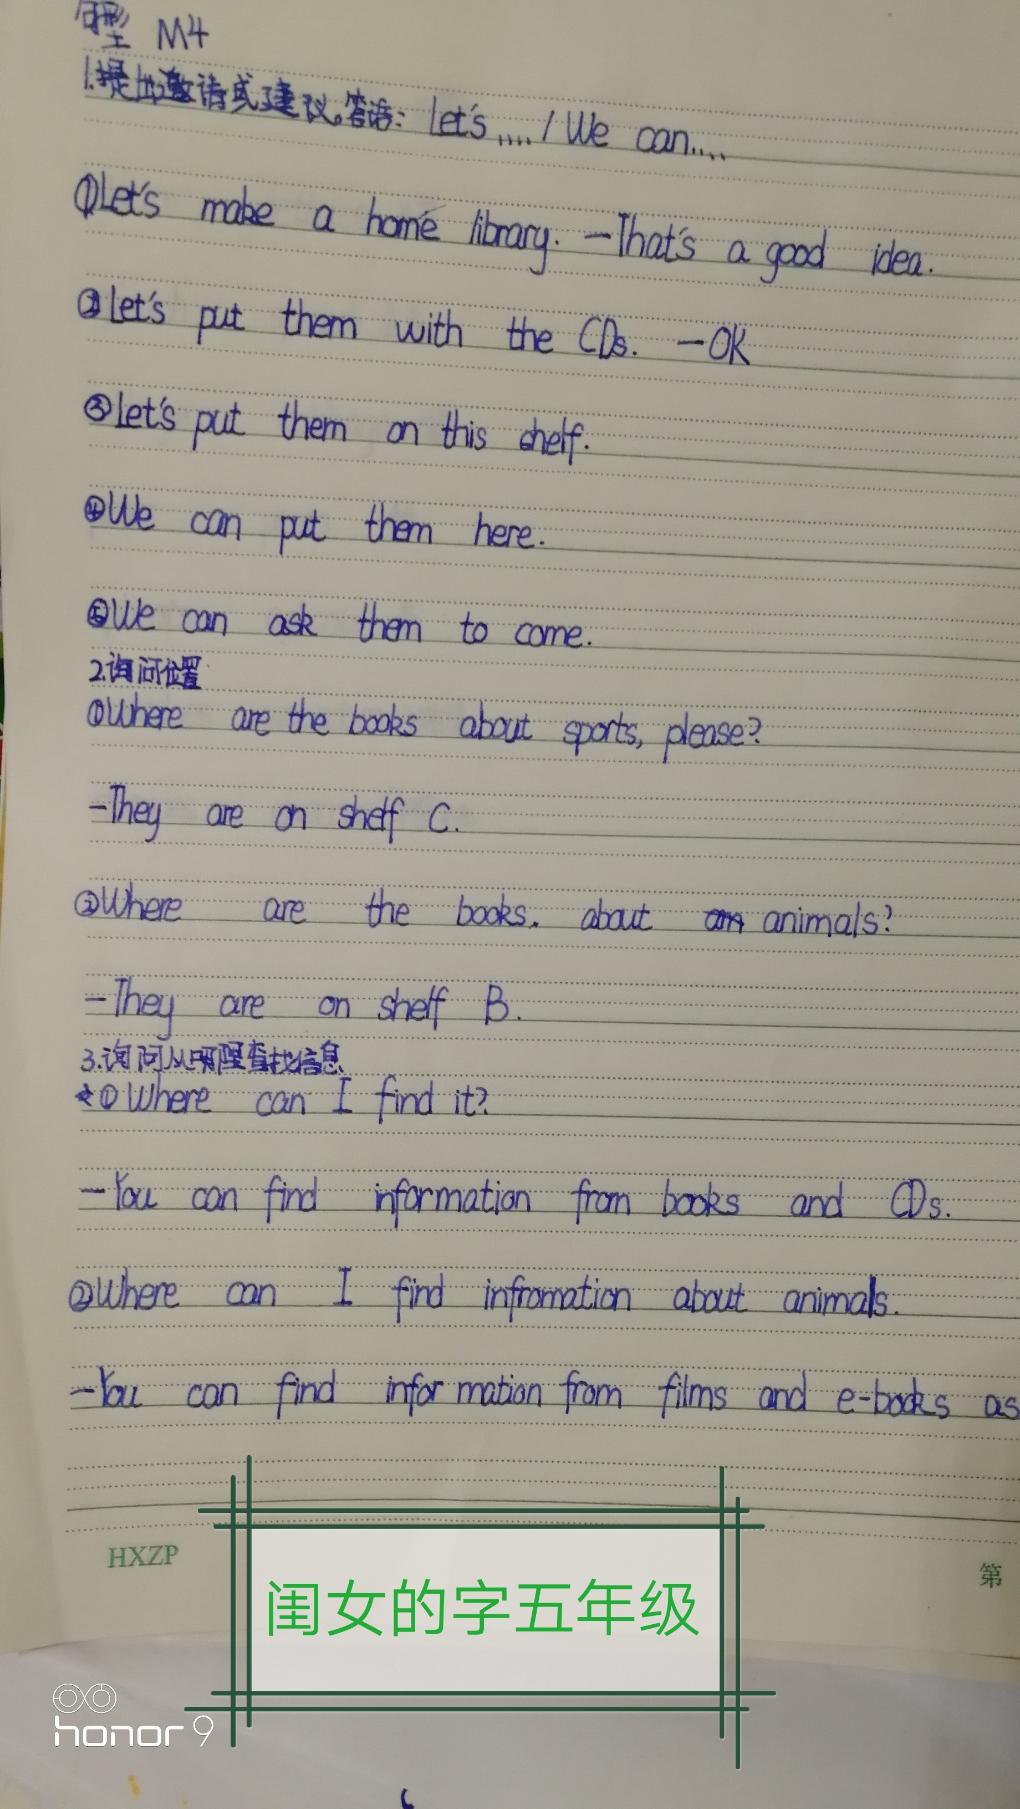 句型 M4
1.提出邀请或建议。答语: Let's..../We can....
①Let's make a home library. -That's a good idea.
②Let's put them with the CDs. -OK
③Let's put them on this shelf.
④We can put them here.
⑤We can ask them to come.
2.询问位置
①Where are the books about sports, please?
-They are on shelf C.
②Where are the books. about animals?
-They are on shelf B.
3.询问从哪里查找信息
★①Where can I find it?
-You can find information from books and CDs.
②Where can I find infromation about animals.
-You can find infor mation from films and e-books as
HXZP
第
闺女的字五年级
honor 9